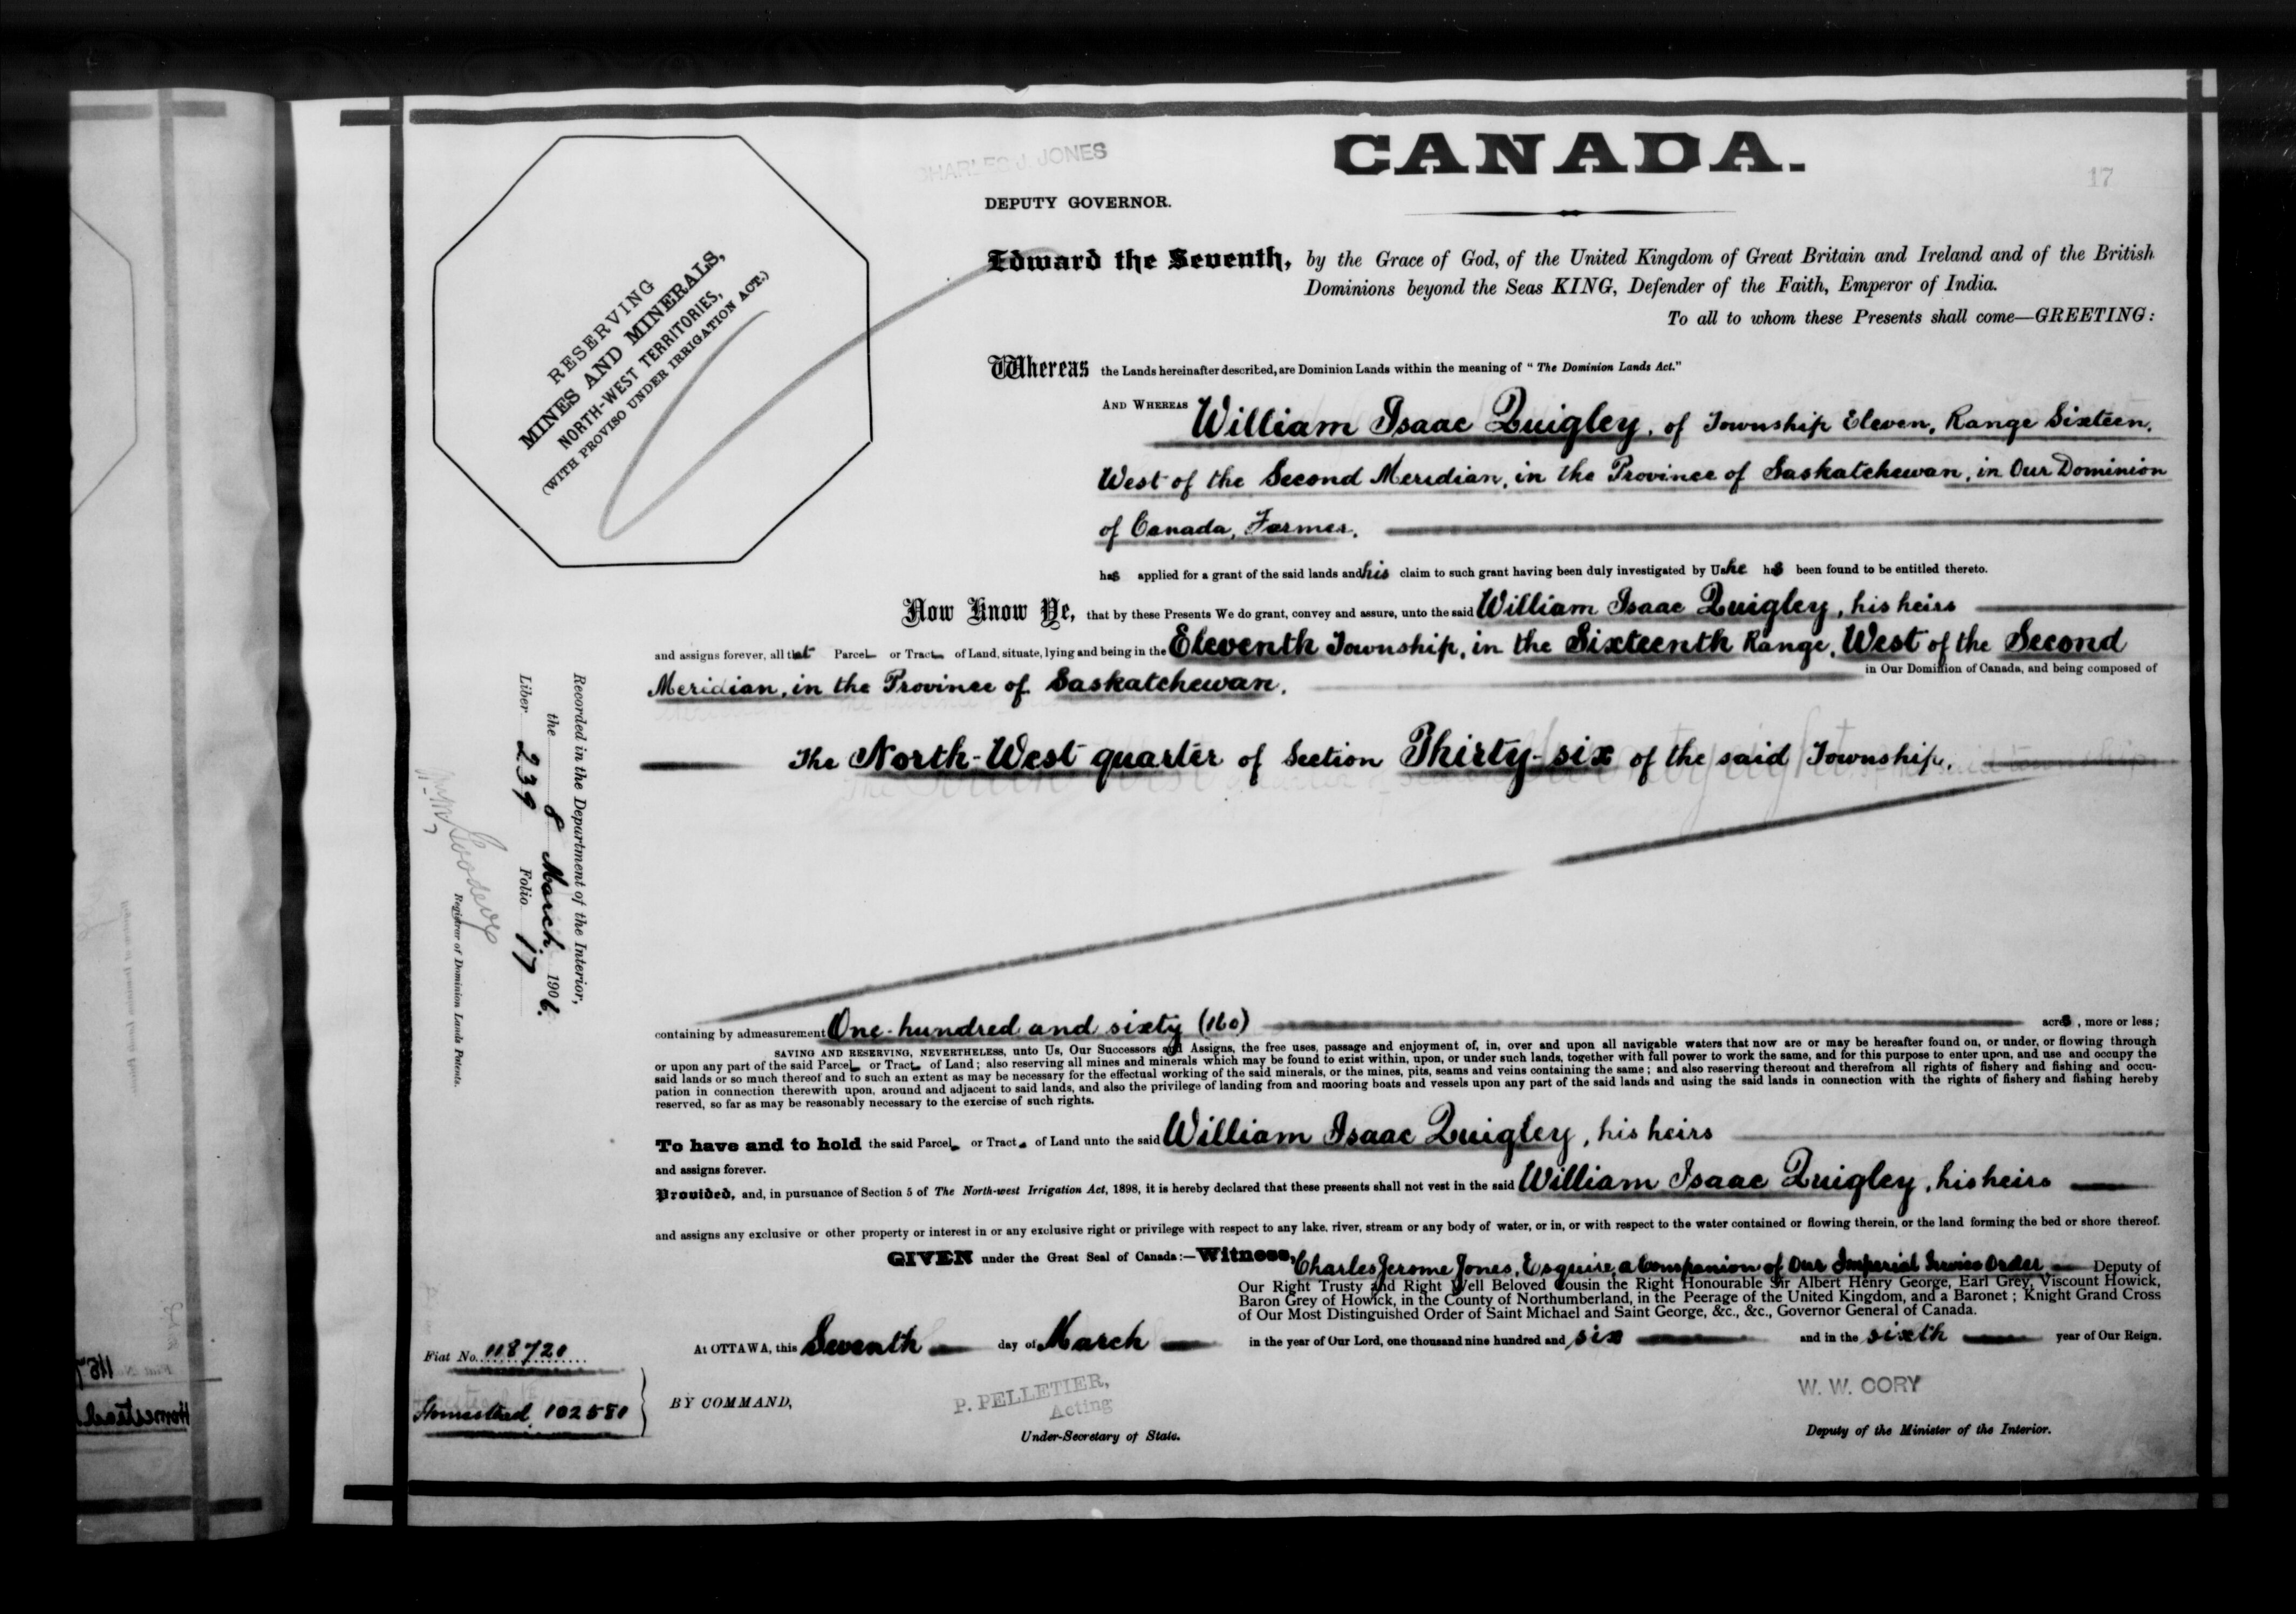 CHARLES J. JONES
DEPUTY GOVERNOR.
CANADA.
17
RESERVING
MINES AND MINERALS,
NORTH-WEST TERRITORIES,
(WITH PROVISO UNDER IRRIGATION ACT.)
Edward the Seventh, by the Grace of God, of the United Kingdom of Great Britain and Ireland and of the British
Dominions beyond the Seas KING, Defender of the Faith, Emperor of India.
To all to whom these Presents shall come—GREETING:
Whereas the Lands hereinafter described, are Dominion Lands within the meaning of "The Dominion Lands Act."
AND WHEREAS William Isaac Quigley, of Township Eleven, Range Sixteen,
West of the Second Meridian, in the Province of Saskatchewan, in Our Dominion
of Canada, Farmer.
has applied for a grant of the said lands and his claim to such grant having been duly investigated by Us he has been found to be entitled thereto.
Now Know Ye, that by these Presents We do grant, convey and assure, unto the said William Isaac Quigley, his heirs
and assigns forever, all that Parcel or Tract of Land, situate, lying and being in the Eleventh Township, in the Sixteenth Range, West of the Second
Meridian, in the Province of Saskatchewan, in Our Dominion of Canada, and being composed of
The North-West quarter of Section Thirty-six of the said Township.
Recorded in the Department of the Interior,
the 8 March 1906.
Liber 239 Folio 17
Registrar of Dominion Lands Patents.
containing by admeasurement One hundred and sixty (160) acres, more or less;
SAVING AND RESERVING, NEVERTHELESS, unto Us, Our Successors and Assigns, the free uses, passage and enjoyment of, in, over and upon all navigable waters that now are or may be hereafter found on, or under, or flowing through
or upon any part of the said Parcel or Tract of Land; also reserving all mines and minerals which may be found to exist within, upon, or under such lands, together with full power to work the same, and for this purpose to enter upon, and use and occupy the
said lands or so much thereof and to such an extent as may be necessary for the effectual working of the said minerals, or the mines, pits, seams and veins containing the same; and also reserving thereout and therefrom all rights of fishery and fishing and occu-
pation in connection therewith upon, around and adjacent to said lands, and also the privilege of landing from and mooring boats and vessels upon any part of the said lands and using the said lands in connection with the rights of fishery and fishing hereby
reserved, so far as may be reasonably necessary to the exercise of such rights.
To have and to hold the said Parcel or Tract of Land unto the said William Isaac Quigley, his heirs
and assigns forever.
Provided, and, in pursuance of Section 5 of The North-west Irrigation Act, 1898, it is hereby declared that these presents shall not vest in the said William Isaac Quigley, his heirs
and assigns any exclusive or other property or interest in or any exclusive right or privilege with respect to any lake, river, stream or any body of water, or in, or with respect to the water contained or flowing therein, or the land forming the bed or shore thereof.
GIVEN under the Great Seal of Canada:—Witness, Charles Jerome Jones, Esquire, a Companion of Our Imperial Service Order Deputy of
Our Right Trusty and Right Well Beloved Cousin the Right Honourable Sir Albert Henry George, Earl Grey, Viscount Howick,
Baron Grey of Howick, in the County of Northumberland, in the Peerage of the United Kingdom, and a Baronet; Knight Grand Cross
of Our Most Distinguished Order of Saint Michael and Saint George, &c., &c., Governor General of Canada.
At OTTAWA, this Seventh day of March in the year of Our Lord, one thousand nine hundred and six and in the sixth year of Our Reign.
Fiat No. 118720
Homestead, 102580
BY COMMAND,
P. PELLETIER,
Acting
Under-Secretary of State.
W. W. CORY
Deputy of the Minister of the Interior.